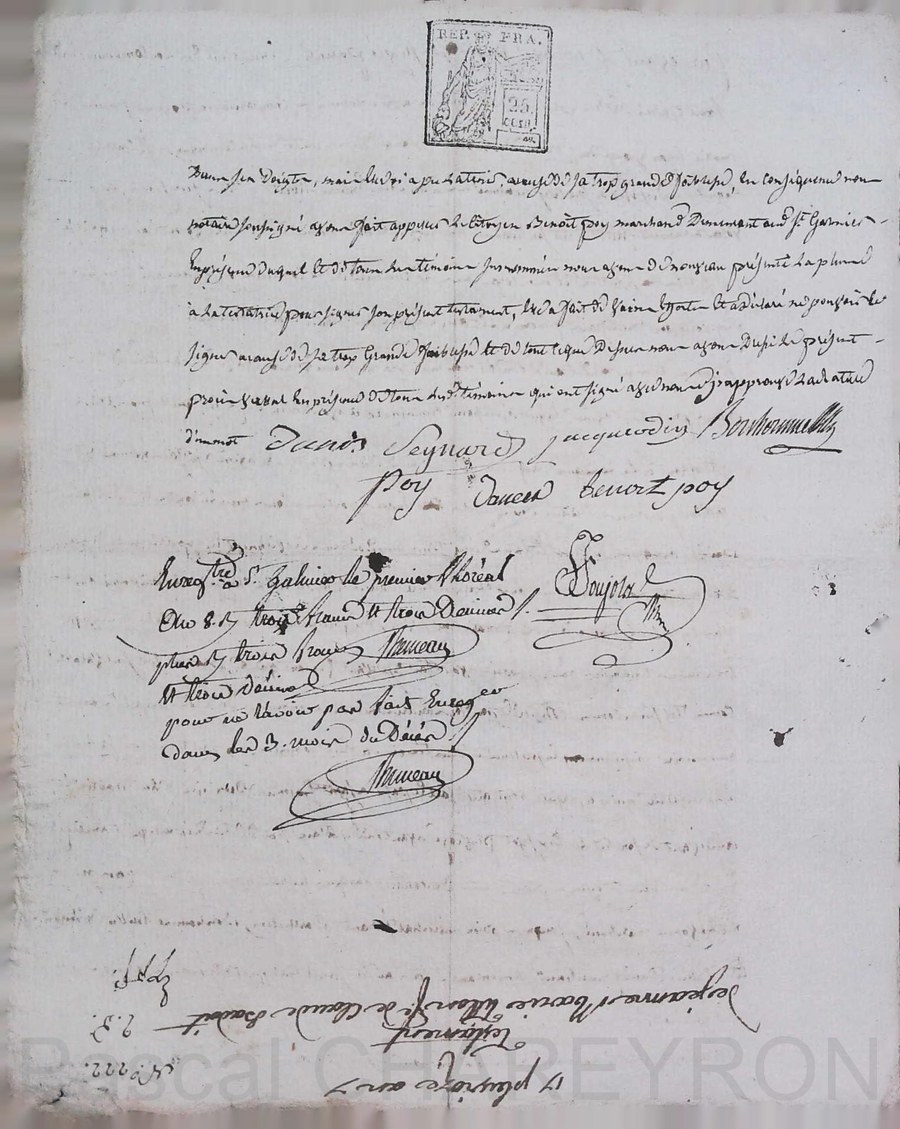 REP. FRA.
25
CENT.
entre ses doigts, mais elle n'a pu écrire, à cause de sa trop grande foiblesse, en conséquence nous
notaire soussigné avons fait appeller le citoyen Benoit Poy marchand Demeurant aud. St. Galmier
En présence duquel et de tous les témoins susnommés nous avons de nouveau présenté la plume
à la testatrice pour signer son présent testament, elle a fait de vains efforts et a déclaré ne pouvoir le
signer à cause de sa trop Grande foiblesse et de tout ce que Dessus nous avons Dressé le présent
procès verbal En présence de tous lesd. témoins qui ont signé avec nous j'approuve la rature
d'un mot
Seynard jacquodin Bonhomme
Poy benoit poy
Enregistré à St. galmier le premier floréal
an 8. R. trois francs et trois Décimes
plus R. trois francs
et trois décimes
pour ne l'avoir pas fait Enreg.er
dans les 3. mois du Décès
17 pluviôse an 7
Testament
de jeanne Marie f.e de Claude
N.° 222.